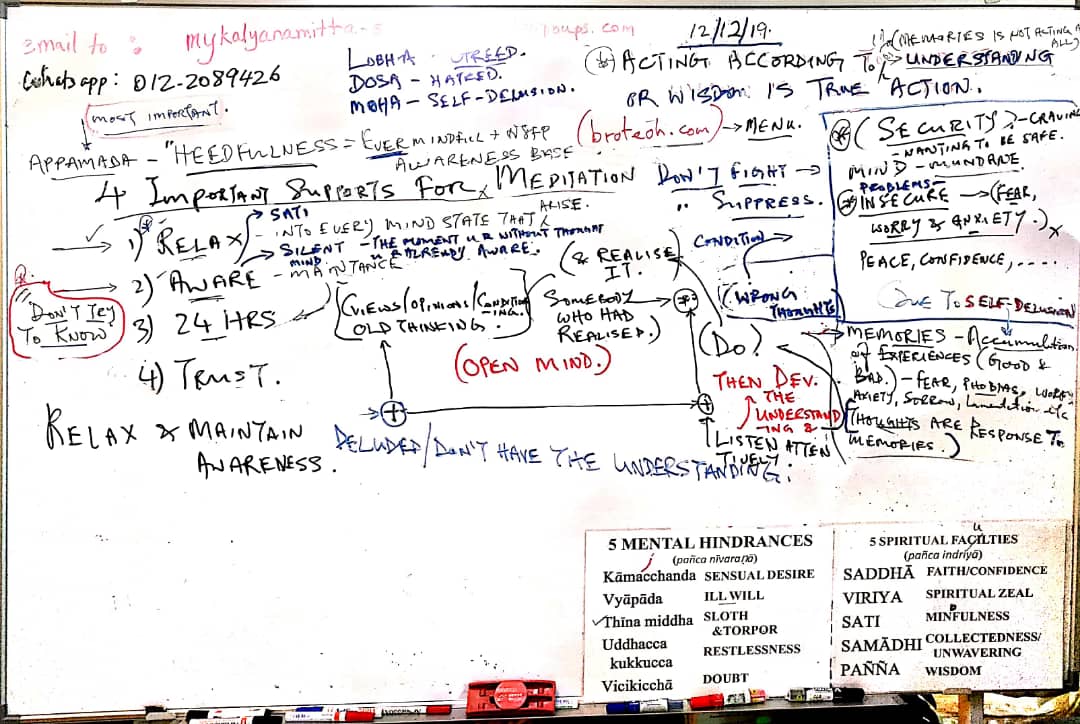 Email to : mykalyanamitta-s
oups.com
Whatsapp: 012-2089426
12/12/19.
LOBHA - GREED.
DOSA - HATRED.
MOHA - SELF-DELUSION.
(MEMORIES IS NOT ACTING A
ALL)
(*) ACTING ACCORDING TO UNDERSTANDING
OR WISDOM IS TRUE ACTION.
(MOST IMPORTANT.
APPAMADA - "HEEDFULNESS = EVER MINDFULL +
AWARENESS BASE
(broteoh.com) → MENU.
4 IMPORTANT SUPPORTS FOR MEDITATION
DON'T FIGHT →
" SUPPRESS.
1) RELAX
→ SATI
- INTO EVERY MIND STATE THAT
ARISE.
→ SILENT MIND - THE MOMENT U R WITHOUT THOUGHT
U R ALREADY AWARE.
2) AWARE - MAINTANCE
3) 24 HRS
4) TRUST.
Q.
"DON'T TRY
TO KNOW"
(VIEWS/OPINIONS/CONDITION
-ING.
OLD THINKING.
(OPEN MIND.)
(& REALISE
IT.
SOMEBODY
WHO HAD
REALISED.)
CONDITION
(WRONG
THOUGHTS)
(DO)
THEN DEV.
THE
UNDERSTAND
-ING &
LISTEN ATTEN
TIVELY
RELAX & MAINTAIN
AWARENESS.
DELUDED/DON'T HAVE THE UNDERSTANDING.
(*) (SECURITY) - CRAVING
- WANTING TO BE SAFE.
MIND - MUNDANE
PROBLEMS -
INSECURE → (FEAR,
WORRY & ANXIETY.) x
PEACE, CONFIDENCE, .....
(DUE TO SELF-DELUSION
MEMORIES - Accumulation
of EXPERIENCES (GOOD &
BAD.) - FEAR, PHOBIAS, WORRY,
ANXIETY, SORROW, Lamentation etc
(THOUGHTS ARE RESPONSE TO
MEMORIES.)
5 MENTAL HINDRANCES
(pañca nīvaraṇā)
Kāmacchanda SENSUAL DESIRE
Vyāpāda ILL WILL
Thīna middha SLOTH
&TORPOR
Uddhacca
kukkucca RESTLESSNESS
Vicikicchā DOUBT
5 SPIRITUAL FACILTIES
(pañca indriyā)
SADDHĀ FAITH/CONFIDENCE
VIRIYA SPIRITUAL ZEAL
SATI MINFULNESS
SAMĀDHI COLLECTEDNESS/
UNWAVERING
PAÑÑA WISDOM